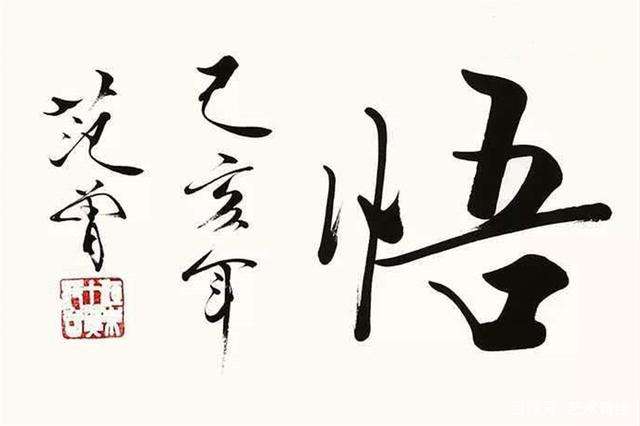 悟
己亥年
范曾